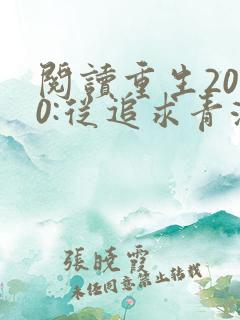 閱讀重生20
0:從追求青
張曉霞
未經同意禁止轉載